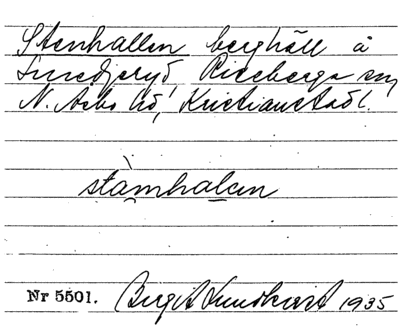 Stenhallen berghäll å
Riseberga sn,
N. Åsbo hd, Kristianstads l.
stàmhalen
Nr 5501. Birgit Lundkvist 1935